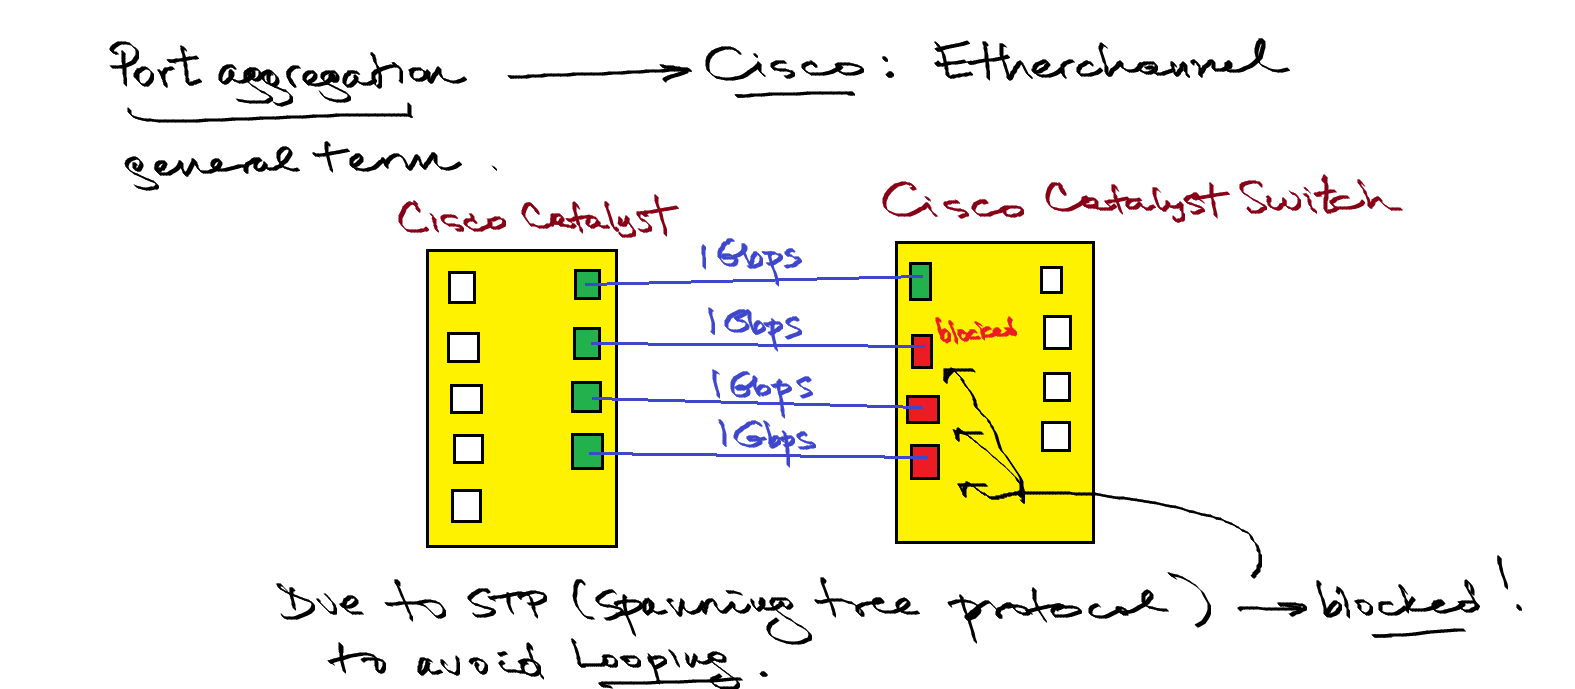 Port aggregation → Cisco: Etherchannel
general term.
Cisco Catalyst
Cisco Catalyst Switch
1 Gbps
1 Gbps
blocked
1 Gbps
1 Gbps
Due to STP (spanning tree protocol) → blocked!
to avoid Looping.